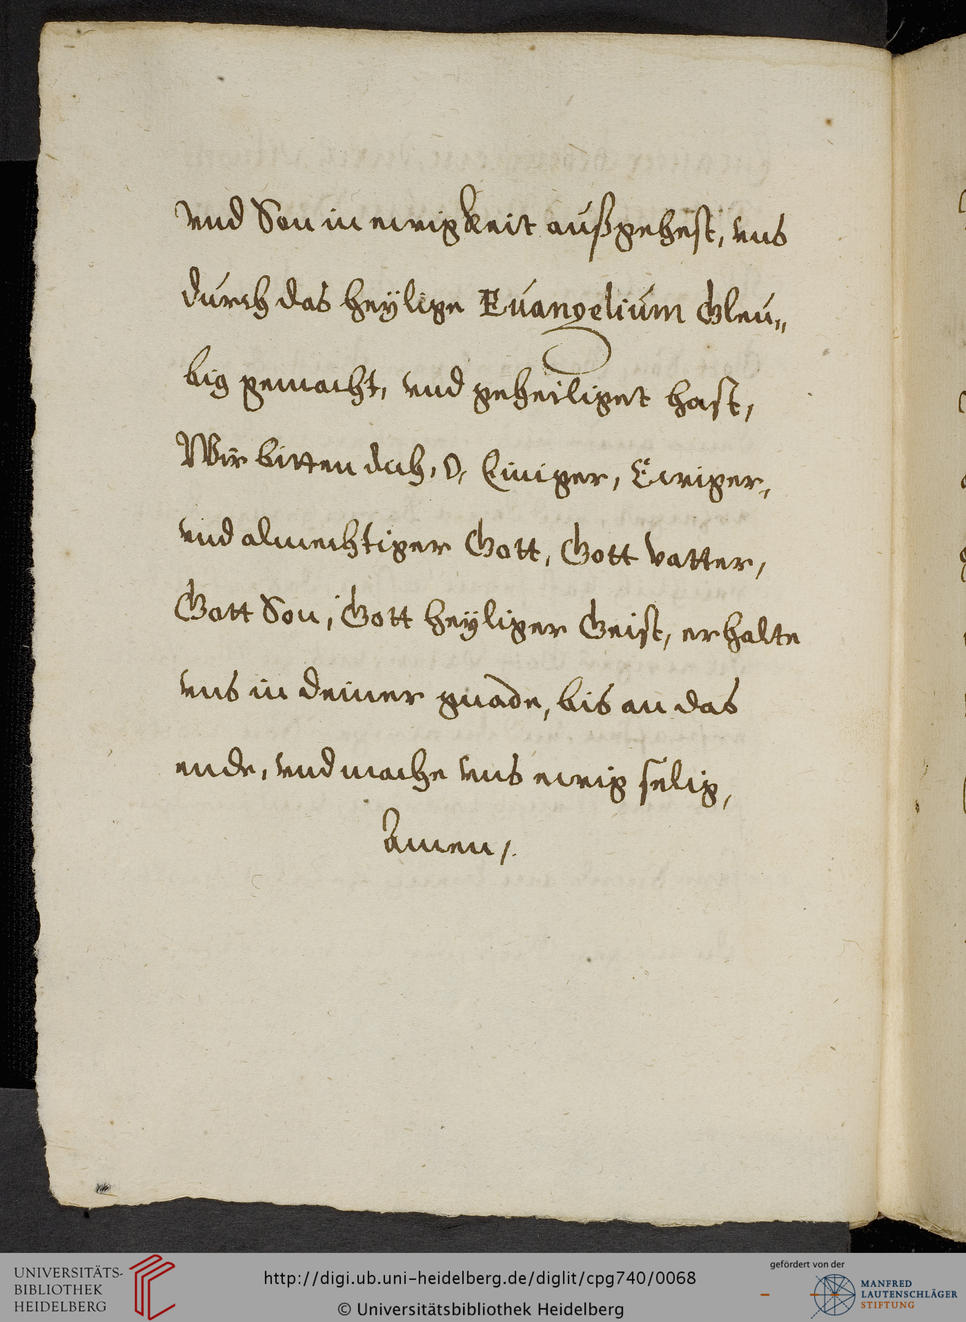 vnd Son in ewigkeit außgehest, vns
durch das heÿlige Euangelium Gleu„
big gemacht, vnd geheiliget hast,
Wir bitten dich, O, Einiger, Ewiger,
vnd almechtiger Gott, Gott vatter,
Gott Son, Gott heÿliger Geist, erhalte
vns in deiner gnade, bis an das
ende, vnd mache vns ewig selig,
Amen/.
UNIVERSITÄTS-
BIBLIOTHEK
HEIDELBERG
http://digi.ub.uni-heidelberg.de/diglit/cpg740/0068
© Universitätsbibliothek Heidelberg
gefördert von der
MANFRED
LAUTENSCHLÄGER
STIFTUNG